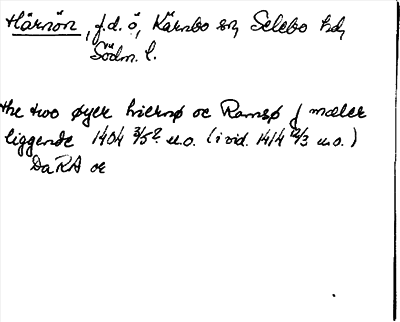 Härnön, f.d. ö, Kärnbo sn, Selebo hd,
nu Södm. l.
the two øyer hiernø oc Ramsø j mæler
liggende 1404 3/5? u.o. (i vid. 1414 12/3 u.o.)
DaRA oc